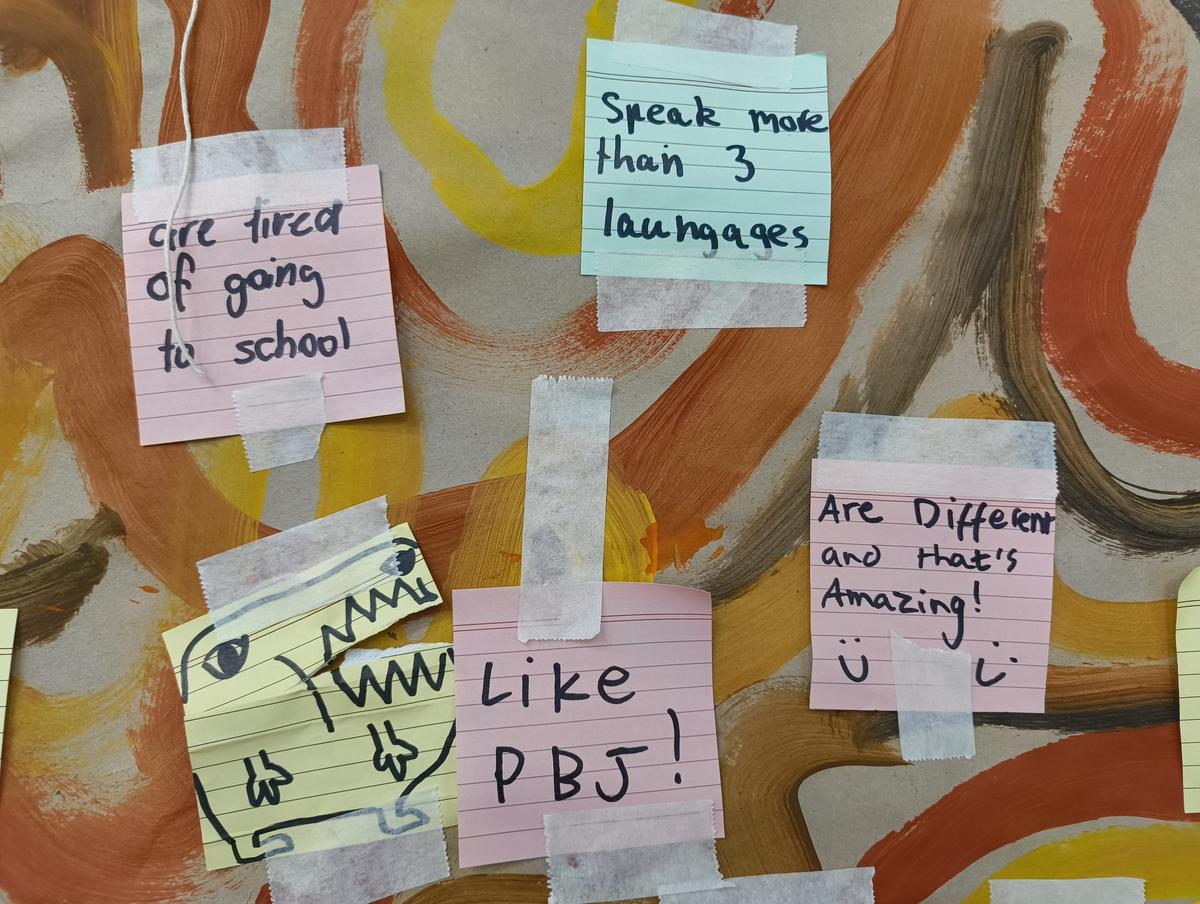 Speak more
than 3
laungages
are tired
of going
to school
Are Different
and that's
Amazing!
Like
PBJ!